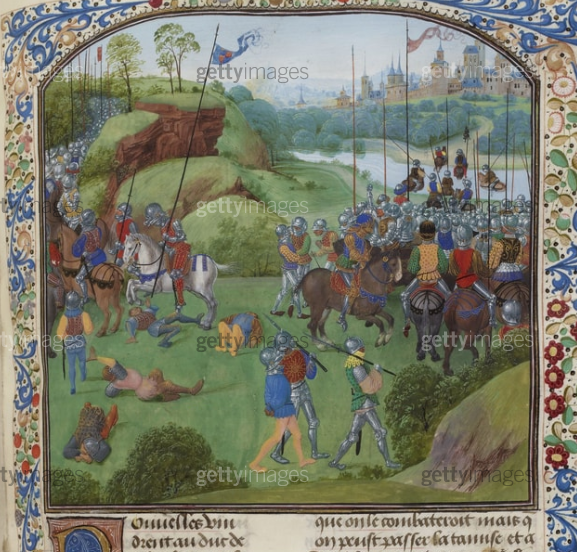 gettyimages gettyimages
gettyimages gettyimages
gettyimages gettyimages
gettyimages gettyimages
ouuelles vin
drent au duc de
que on se combateroit mais q
on peust passer la tamise et a